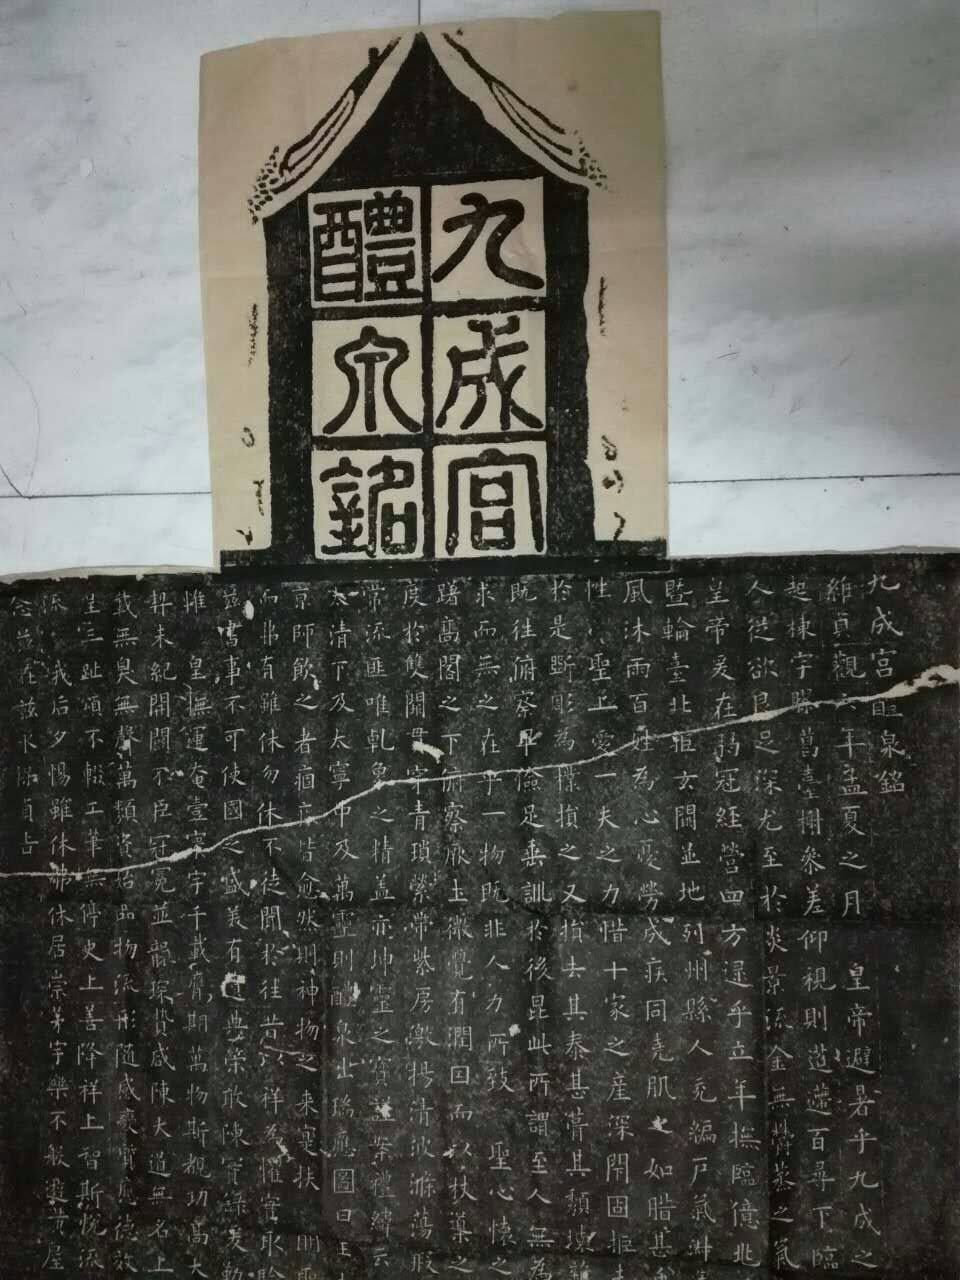 九成宮
醴泉銘
九成宮醴泉銘
維貞觀六年孟夏之月 皇帝避暑乎九成之
起棟宇膠葛臺榭參差仰視則迢遰百尋下臨
人從欲良足深尤至於炎景流金無鬱蒸之氣
皇帝爰在弱冠經營四方逮乎立年撫臨億兆
暨輪臺北拒玄闕並地列州縣人充編戶氣淑
風沐雨百姓為心憂勞成疾同堯肌之如腊甚禹
性 聖上愛一夫之力惜十家之產深閉固拒未
於是斲彫為樸損之又損去其泰甚葺其頹壞雜
既往俯察卑儉足垂訓於後昆此所謂至人無為
求而無之在乎一物既非人力所致 聖心懷之
躇高閣之下俯察厥土微覺有潤因而以杖導之
度於雙闕貫穿青瑣縈帶紫房激揚清波滌蕩瑕
常流匪唯乾象之精蓋亦坤靈之寶謹案禮緯云
太清下及太寧中及萬靈則醴泉出瑞應圖曰王
京師飲之者痼疾皆愈然則神物之來寔扶明聖
而弗有雖休勿休不徒聞於往昔以祥為懼實取驗
茲書事不可使國之盛美有遺典策敢陳實錄爰勒
惟 皇撫運奄壹寰宇千載膺期萬物斯覩功高大
契未紀開闢不臣冠冕並襲琛贄咸陳大道無名上
我無臭無聲萬類資始品物流形隨感變質應德效
生三趾頌不輟工筆無停史上善降祥上智斯悅流
我后夕惕雖休弗休居崇茅宇樂不般遊黃屋
念茲在茲永保貞吉